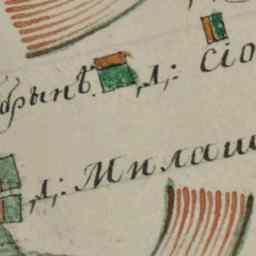 брынъ. д,: сіо
д,: Милаш